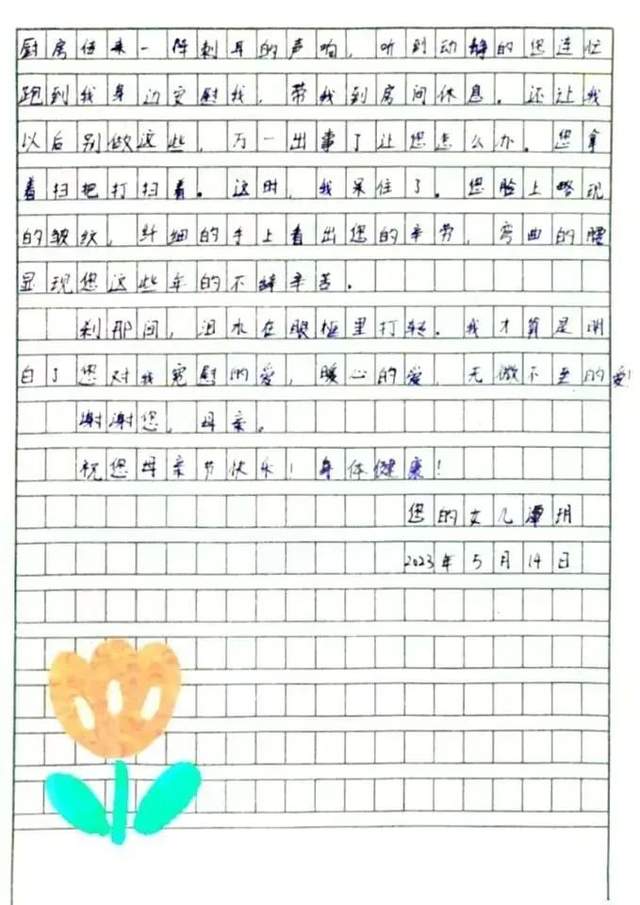 厨房传来一阵刺耳的声响，听到动静的您连忙
跑到我身边安慰我，带我到房间休息。还让我
以后别做这些，万一出事了让您怎么办。您拿
着扫把打扫着。这时，我呆住了。您脸上略现
的皱纹，纤细的手上看出您的辛劳，弯曲的腰
显现您这些年的不辞辛苦。
刹那间，泪水在眼框里打转。我才算是明
白了您对我宽慰的爱，暖心的爱，无微不至的爱！
谢谢您，母亲。
祝您母亲节快乐！身体健康！
您的女儿潭玥
2023年5月14日